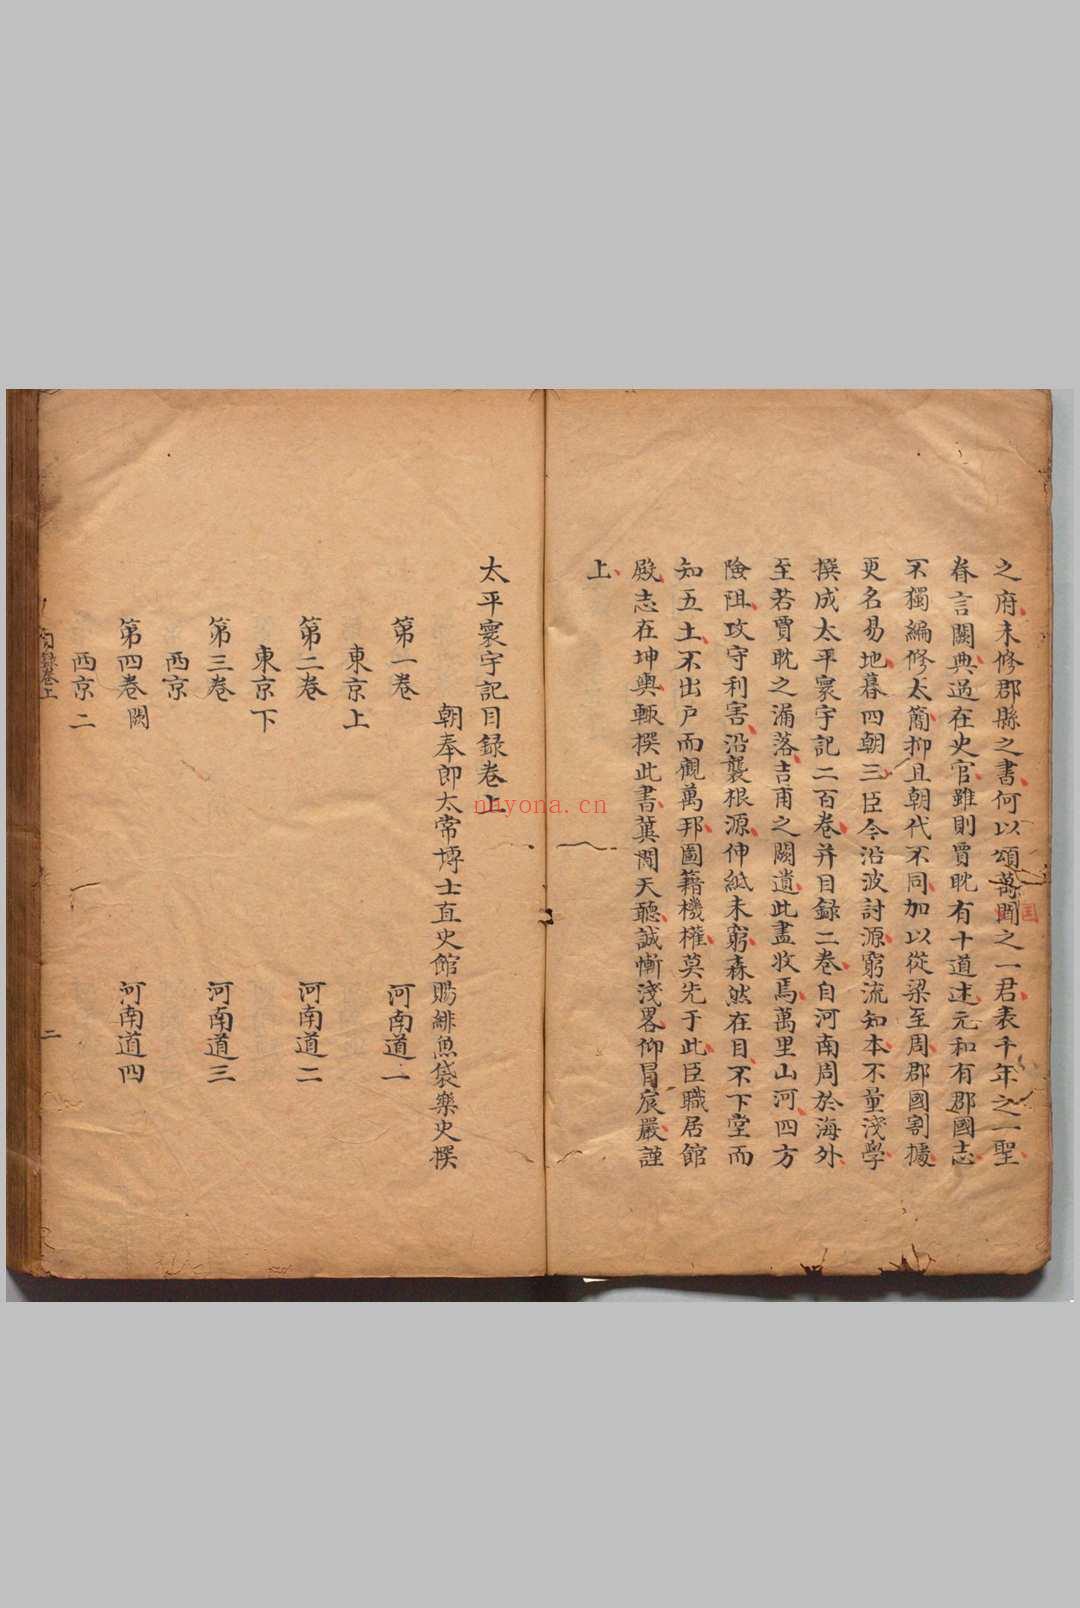 之府未修郡縣之書何以頌萬國之一君表千年之一聖
眷言闕典過在史官雖則賈耽有十道述元和有郡國志
不獨編修太簡抑且朝代不同加以從梁至周郡國割據
更名易地暮四朝三臣今沿波討源窮流知本不量淺學
撰成太平寰宇記二百卷并目録二卷自河南周於海外
至若賈耽之漏落吉甫之闕遺此盡收焉萬里山河四方
險阻攻守利害沿襲根源伸紙未窮森然在目不下堂而
知五土不出户而觀萬邦圖籍機權莫先于此臣職居館
殿志在坤輿輒撰此書冀聞天聽誠慚淺畧仰冒宸嚴謹
上
太平寰宇記目録卷上
朝奉郎太常博士直史館賜緋魚袋樂史撰
第一卷 河南道一
東京上
第二卷 河南道二
東京下
第三卷 河南道三
西京
第四卷闕 河南道四
西京二
目録卷上 二
nayona.cn